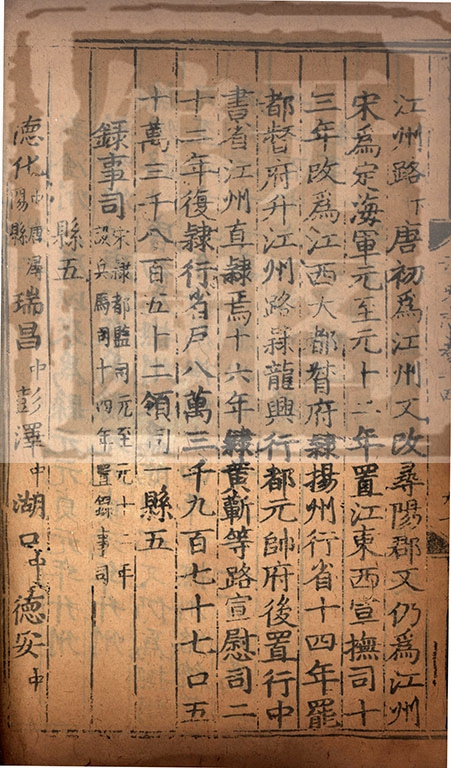 江州路下唐初爲江州又改尋陽郡又仍爲江州
宋爲定海軍元至元十二年置江東西宣撫司十
三年改爲江西大都督府隷揚州行省十四年罷
都督府升江州路隷龍興行都元帥府後置行中
書省江州直隷焉十六年隷黄蘄等路宣慰司二
十二年復隷行省戸八萬三千九百七十七口五
十萬三千八百五十二領司一縣五
録事司宋隷都監司元至元十二年
設兵馬司十四年置録事司
縣五
德化中唐潯
陽縣瑞昌中彭澤中湖口中德安中